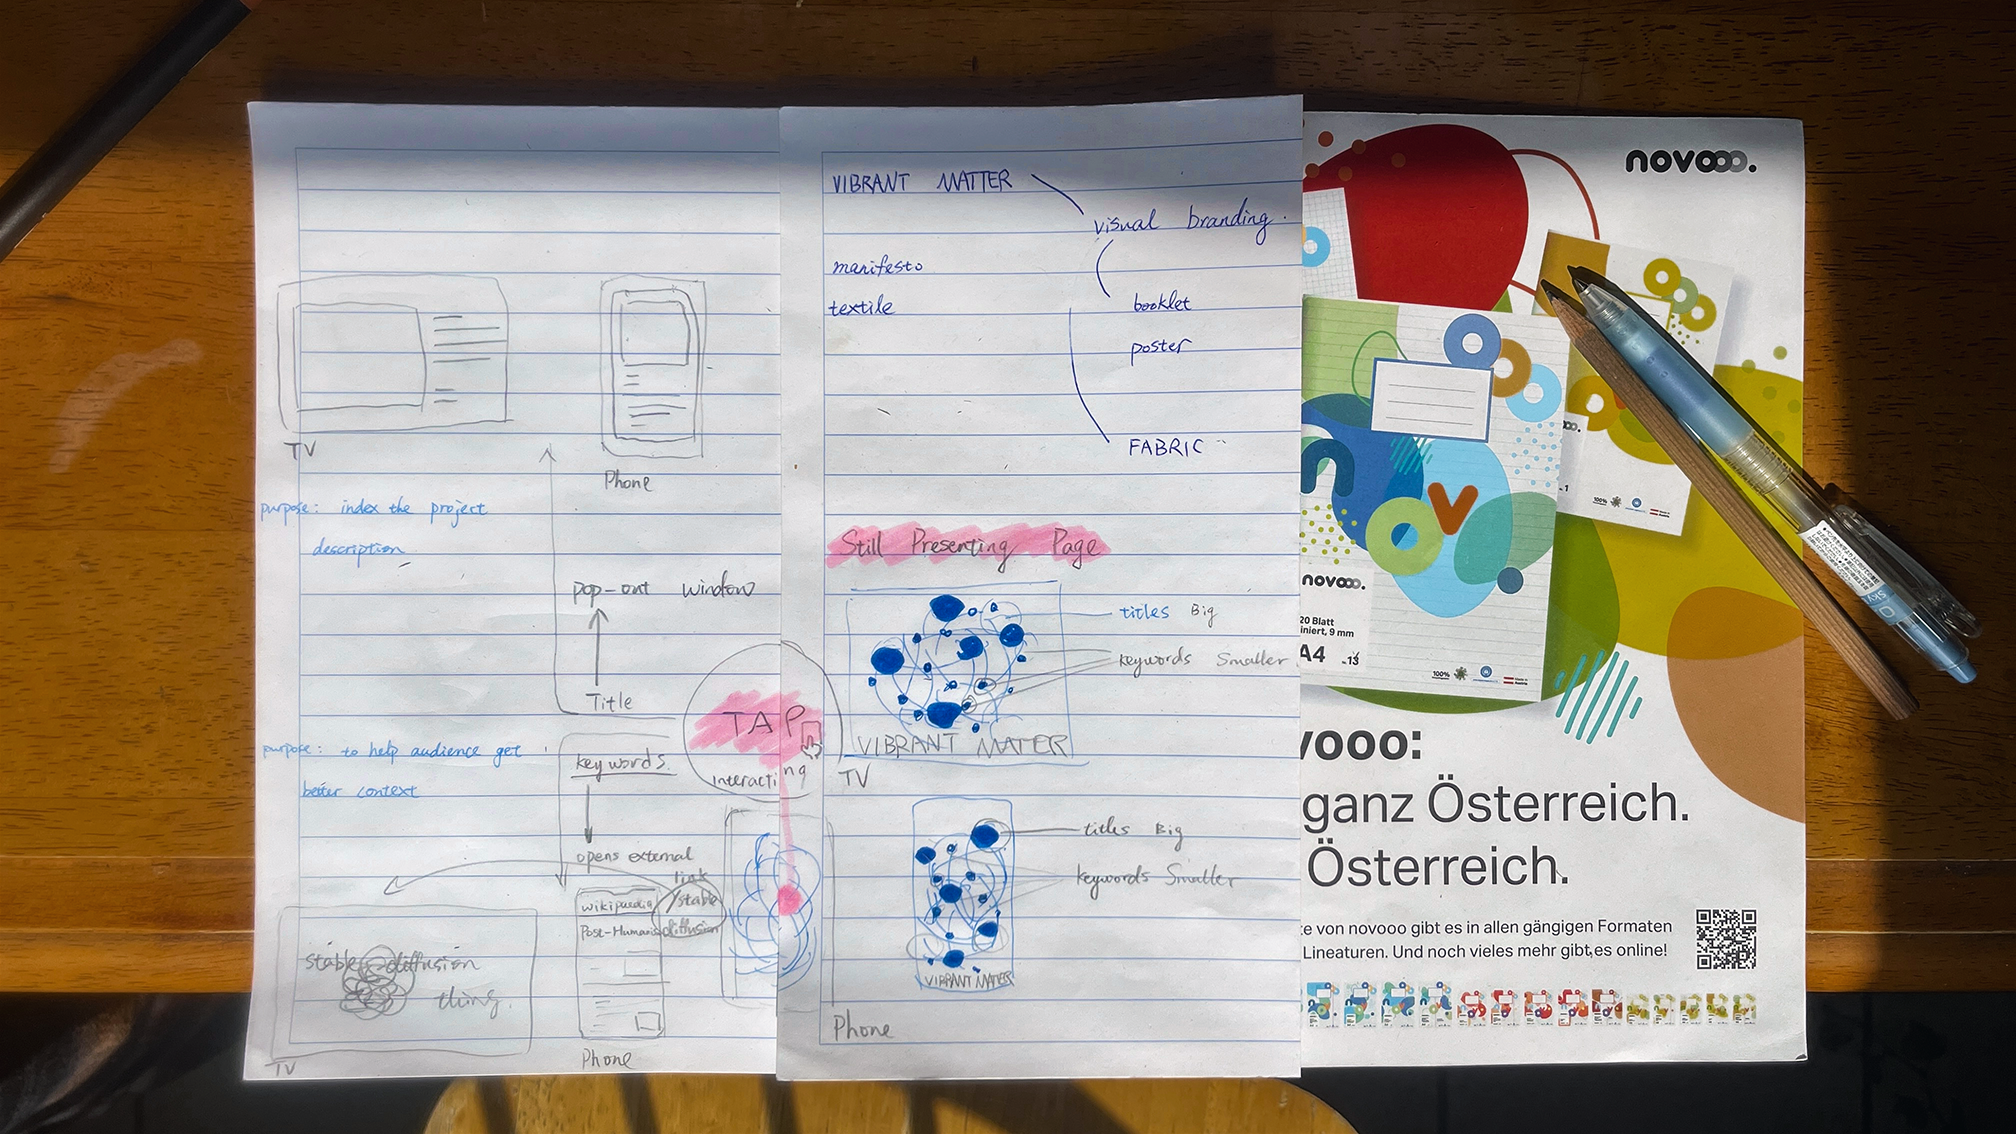 TV
Phone
purpose: index the project
description
pop-out window
Title
TAP
interacting
purpose: to help audience get
better context
keywords.
opens external
link
/stable
diffusion
wikipaedia
Post-Humanis
stable diffusion
thing.
TV
Phone
VIBRANT MATTER
visual branding.
manifesto
textile
booklet
poster
FABRIC
Still Presenting Page
titles Big
keywords Smaller
VIBRANT MATTER
TV
titles Big
keywords Smaller
VIBRANT MATTER
Phone
novooo.
novooo.
20 Blatt
iniert, 9 mm
A4 Nr.13
100%
vooo:
ganz Österreich.
Österreich.
te von novooo gibt es in allen gängigen Formaten
Lineaturen. Und noch vieles mehr gibt es online!